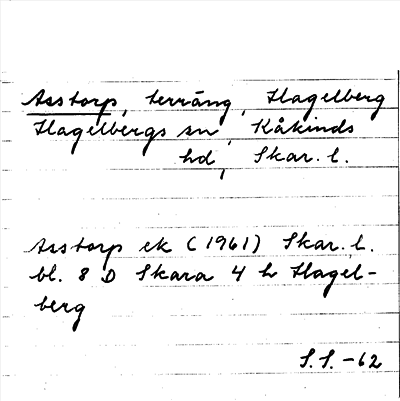 Asstorp, terräng, Hagelberg
Hagelbergs sn, Kåkinds
hd, Skar. l.
Asstorp ek (1961) Skar. l.
bl. 8 D Skara 4 h Hagel-
berg
S.S. -62